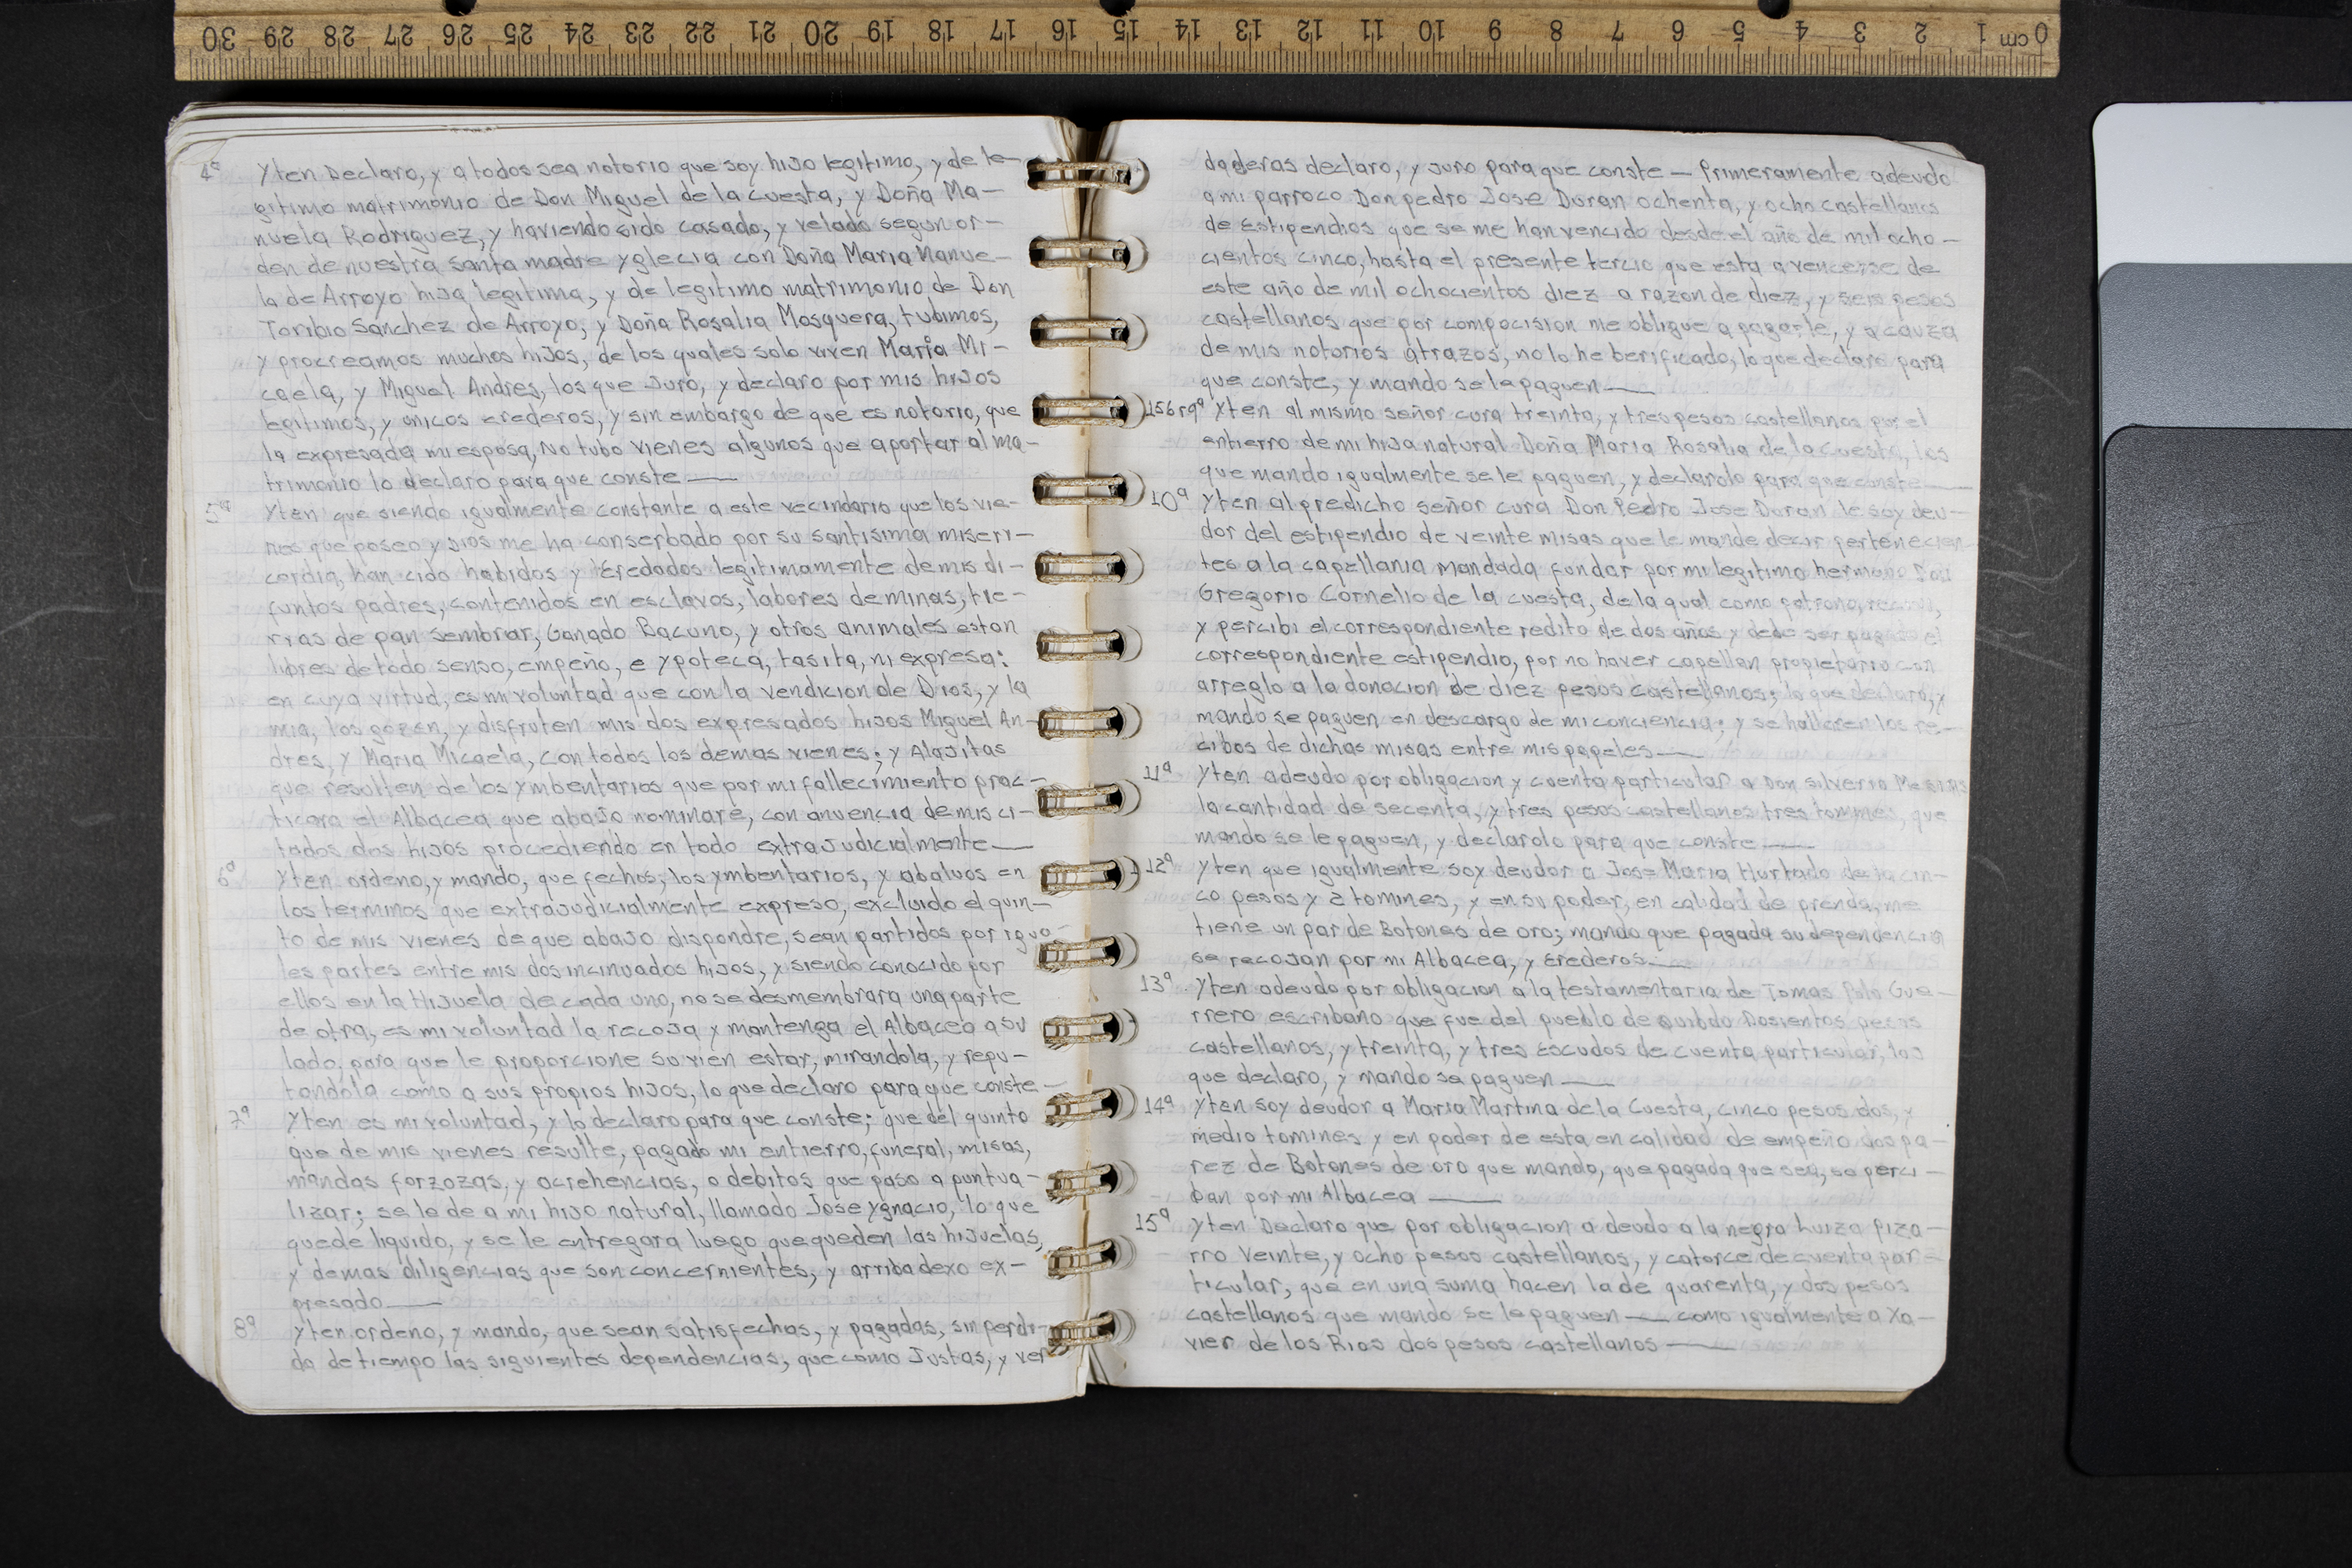 30 29 28 27 26 25 24 23 22 21 20 19 18 17 16 15 14 13 12 11 10 9 8 7 6 5 4 3 2 1 cm 0
4ª Yten Declaro, y a todos sea notorio que soy hijo legitimo, y de le-
gitimo matrimonio de Don Miguel de la Cuesta, y Doña Ma-
nuela Rodriguez, y haviendo sido casado, y velado segun or-
den de nuestra santa madre yglecia con Doña Maria Manue-
la de Arroyo hija legitima, y de legitimo matrimonio de Don
Toribio Sanchez de Arroyo, y Doña Rosalia Mosquera, tubimos,
y procreamos muchos hijos, de los quales solo viven Maria Mi-
caela, y Miguel Andres, los que Juro, y declaro por mis hijos
legitimos, y unicos erederos, y sin embargo de que es notorio, que
la expresada mi esposa, No tubo vienes algunos que aportar al ma-
trimonio lo declaro para que conste —
5ª Yten que siendo igualmente constante a este vecindario que los vie-
nes que poseo y Dios me ha conserbado por su santisima miseri-
cordia, han cido habidos y Eredados legitimamente de mis di-
funtos padres, contenidos en esclavos, labores de minas, tie-
rras de pan sembrar, Ganado Bacuno, y otros animales estan
libres de todo senso, empeño, e ypoteca, tasita, ni expresa:
en cuya virtud, es mi voluntad que con la vendicion de Dios, y la
mia, los gozen, y disfruten mis dos expresados hijos Miguel An-
dres, y Maria Micaela, con todos los demas vienes; y Alajitas
que resulten de los ymbentarios que por mi fallecimiento prac-
ticara el Albacea que abajo nominare, con anuencia de mis ci-
tados dos hijos procediendo en todo extrajudicialmente —
6ª Yten ordeno, y mando, que fechos, los ymbentarios, y abaluos en
los terminos que extrajudicialmente expreso, excluido el quin-
to de mis vienes de que abajo dispondre, sean partidos por igua-
les partes entre mis dos incinuados hijos, y siendo conocido por
ellos en la Hijuela de cada uno, no se desmembrara una parte
de otra, es mi voluntad la recoja y mantenga el Albacea a su
lado, para que le proporcione su vien estar, mirandola, y repu-
tandola como a sus propios hijos, lo que declaro para que conste —
7ª Yten es mi voluntad, y lo declaro para que conste; que del quinto
que de mis vienes resulte, pagado mi entierro, funeral, misas,
mandas forzozas, y acrehencias, o debitos que paso a puntua-
lizar; se le de a mi hijo natural, llamado Jose Ygnacio, lo que
quede liquido, y se le entregara luego que queden las hijuelas,
y demas diligencias que son concernientes, y arriba dexo ex-
presado —
8ª Yten ordeno, y mando, que sean satisfechas, y pagadas, sin perdi-
da de tiempo las siguientes dependencias, que como Justas, y ver
daderas declaro, y juro para que conste — Primeramente adeudo
a mi parroco Don pedro Jose Duran ochenta, y ocho castellanos
de Estipendios que se me han vencido desde el año de mil ocho-
cientos cinco, hasta el presente tercio que esta a vencerse de
este año de mil ochocientos diez a razon de diez, y seis pesos
castellanos que por compocision me obligue a pagarle, y a cauza
de mis notorios atrazos, no lo he berificado, lo que declaro para
que conste, y mando se le paguen —
156r9ª Yten al mismo señor cura treinta, y tres pesos castellanos por el
entierro de mi hija natural Doña Maria Rosalia de la Cuesta, los
que mando igualmente se le paguen, y declarolo para que conste —
10ª Yten al predicho señor cura Don Pedro Jose Duran le soy deu-
dor del estipendio de veinte misas que le mande decir pertenecien-
tes a la capellania mandada fundar por mi legitimo hermano Don
Gregorio Cornelio de la Cuesta, de la qual como patrono,
y percibi el correspondiente redito de dos años y debe ser pagado el
correspondiente estipendio, por no haver capellan propietario con
arreglo a la donacion de diez pesos castellanos; lo que declaro, y
mando se paguen en descargo de mi conciencia; y se hallaren los re-
cibos de dichas misas entre mis papeles —
11ª Yten adeudo por obligacion y cuenta particular a Don Silverio
la cantidad de secenta, y tres pesos castellanos tres tomines, que
mando se le paguen, y declarolo para que conste —
12ª Yten que igualmente soy deudor a Jose Maria Hurtado de la cin-
co pesos y 2 tomines, y en su poder, en calidad de prenda, me
tiene un par de Botones de oro; mando que pagada su dependencia
se recojan por mi Albacea, y Erederos —
13ª Yten adeudo por obligacion a la testamentaria de Tomas Polo Gue-
rrero escribano que fue del pueblo de Quibdo Dosientos pesos
castellanos, y treinta, y tres Escudos de cuenta particular, los
que declaro, y mando se paguen —
14ª Yten soy deudor a Maria Martina de la Cuesta, cinco pesos dos, y
medio tomines y en poder de esta en calidad de empeño dos pa-
rez de Botones de oro que mando, que pagada que sea, se perci-
ban por mi Albacea —
15ª Yten Declaro que por obligacion a deudo a la negra Luiza Piza-
rro Veinte, y ocho pesos castellanos, y catorce de cuenta par-
ticular, que en una suma hacen la de quarenta, y dos pesos
castellanos que mando se le paguen — como igualmente a Xa-
vier de los Rios dos pesos castellanos —